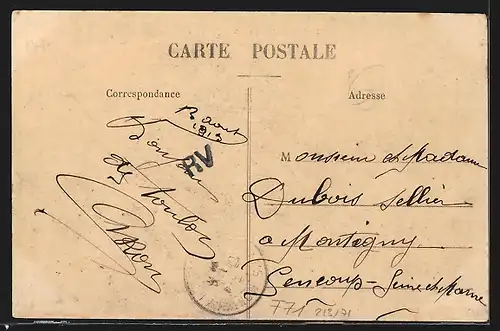 CARTE POSTALE
Correspondance
Adresse
Août
1913
RV
Bonjour
de Toulon
Monsieur et Madame
Dubois Sellier
a Montigny
Lencoup - Seine et Marne
F71